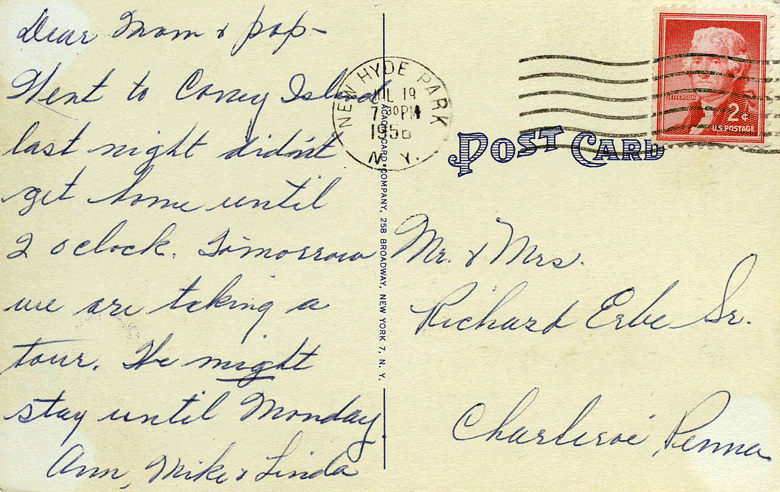 Dear Mom & pop—
Went to Coney Island
last night didn't
get home until
2 oclock. Tomorrow
we are taking a
tour. We might
stay until Monday
Ann, Mike & Linda
NEW HYDE PARK
JUL 19
7 30 PM
1956
N. Y.
JEFFERSON
2¢
U.S. POSTAGE
POST CARD
CARD COMPANY, 258 BROADWAY, NEW YORK 7, N. Y.
Mr. & Mrs.
Richard Erbe Sr.
Charleroi, Penna